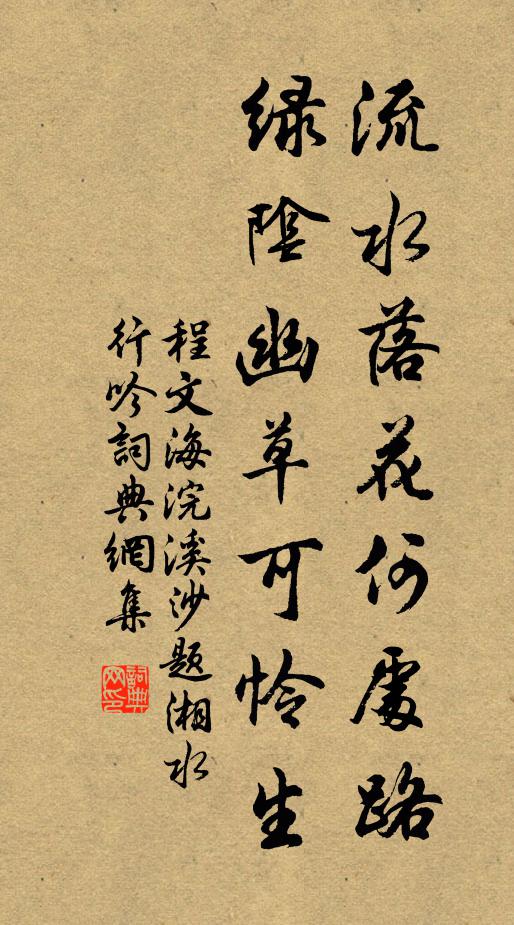 流水落花何處路
緑陰幽草可怜生
程文海浣溪沙題湘水
行吟詞典網集
詞典
网印